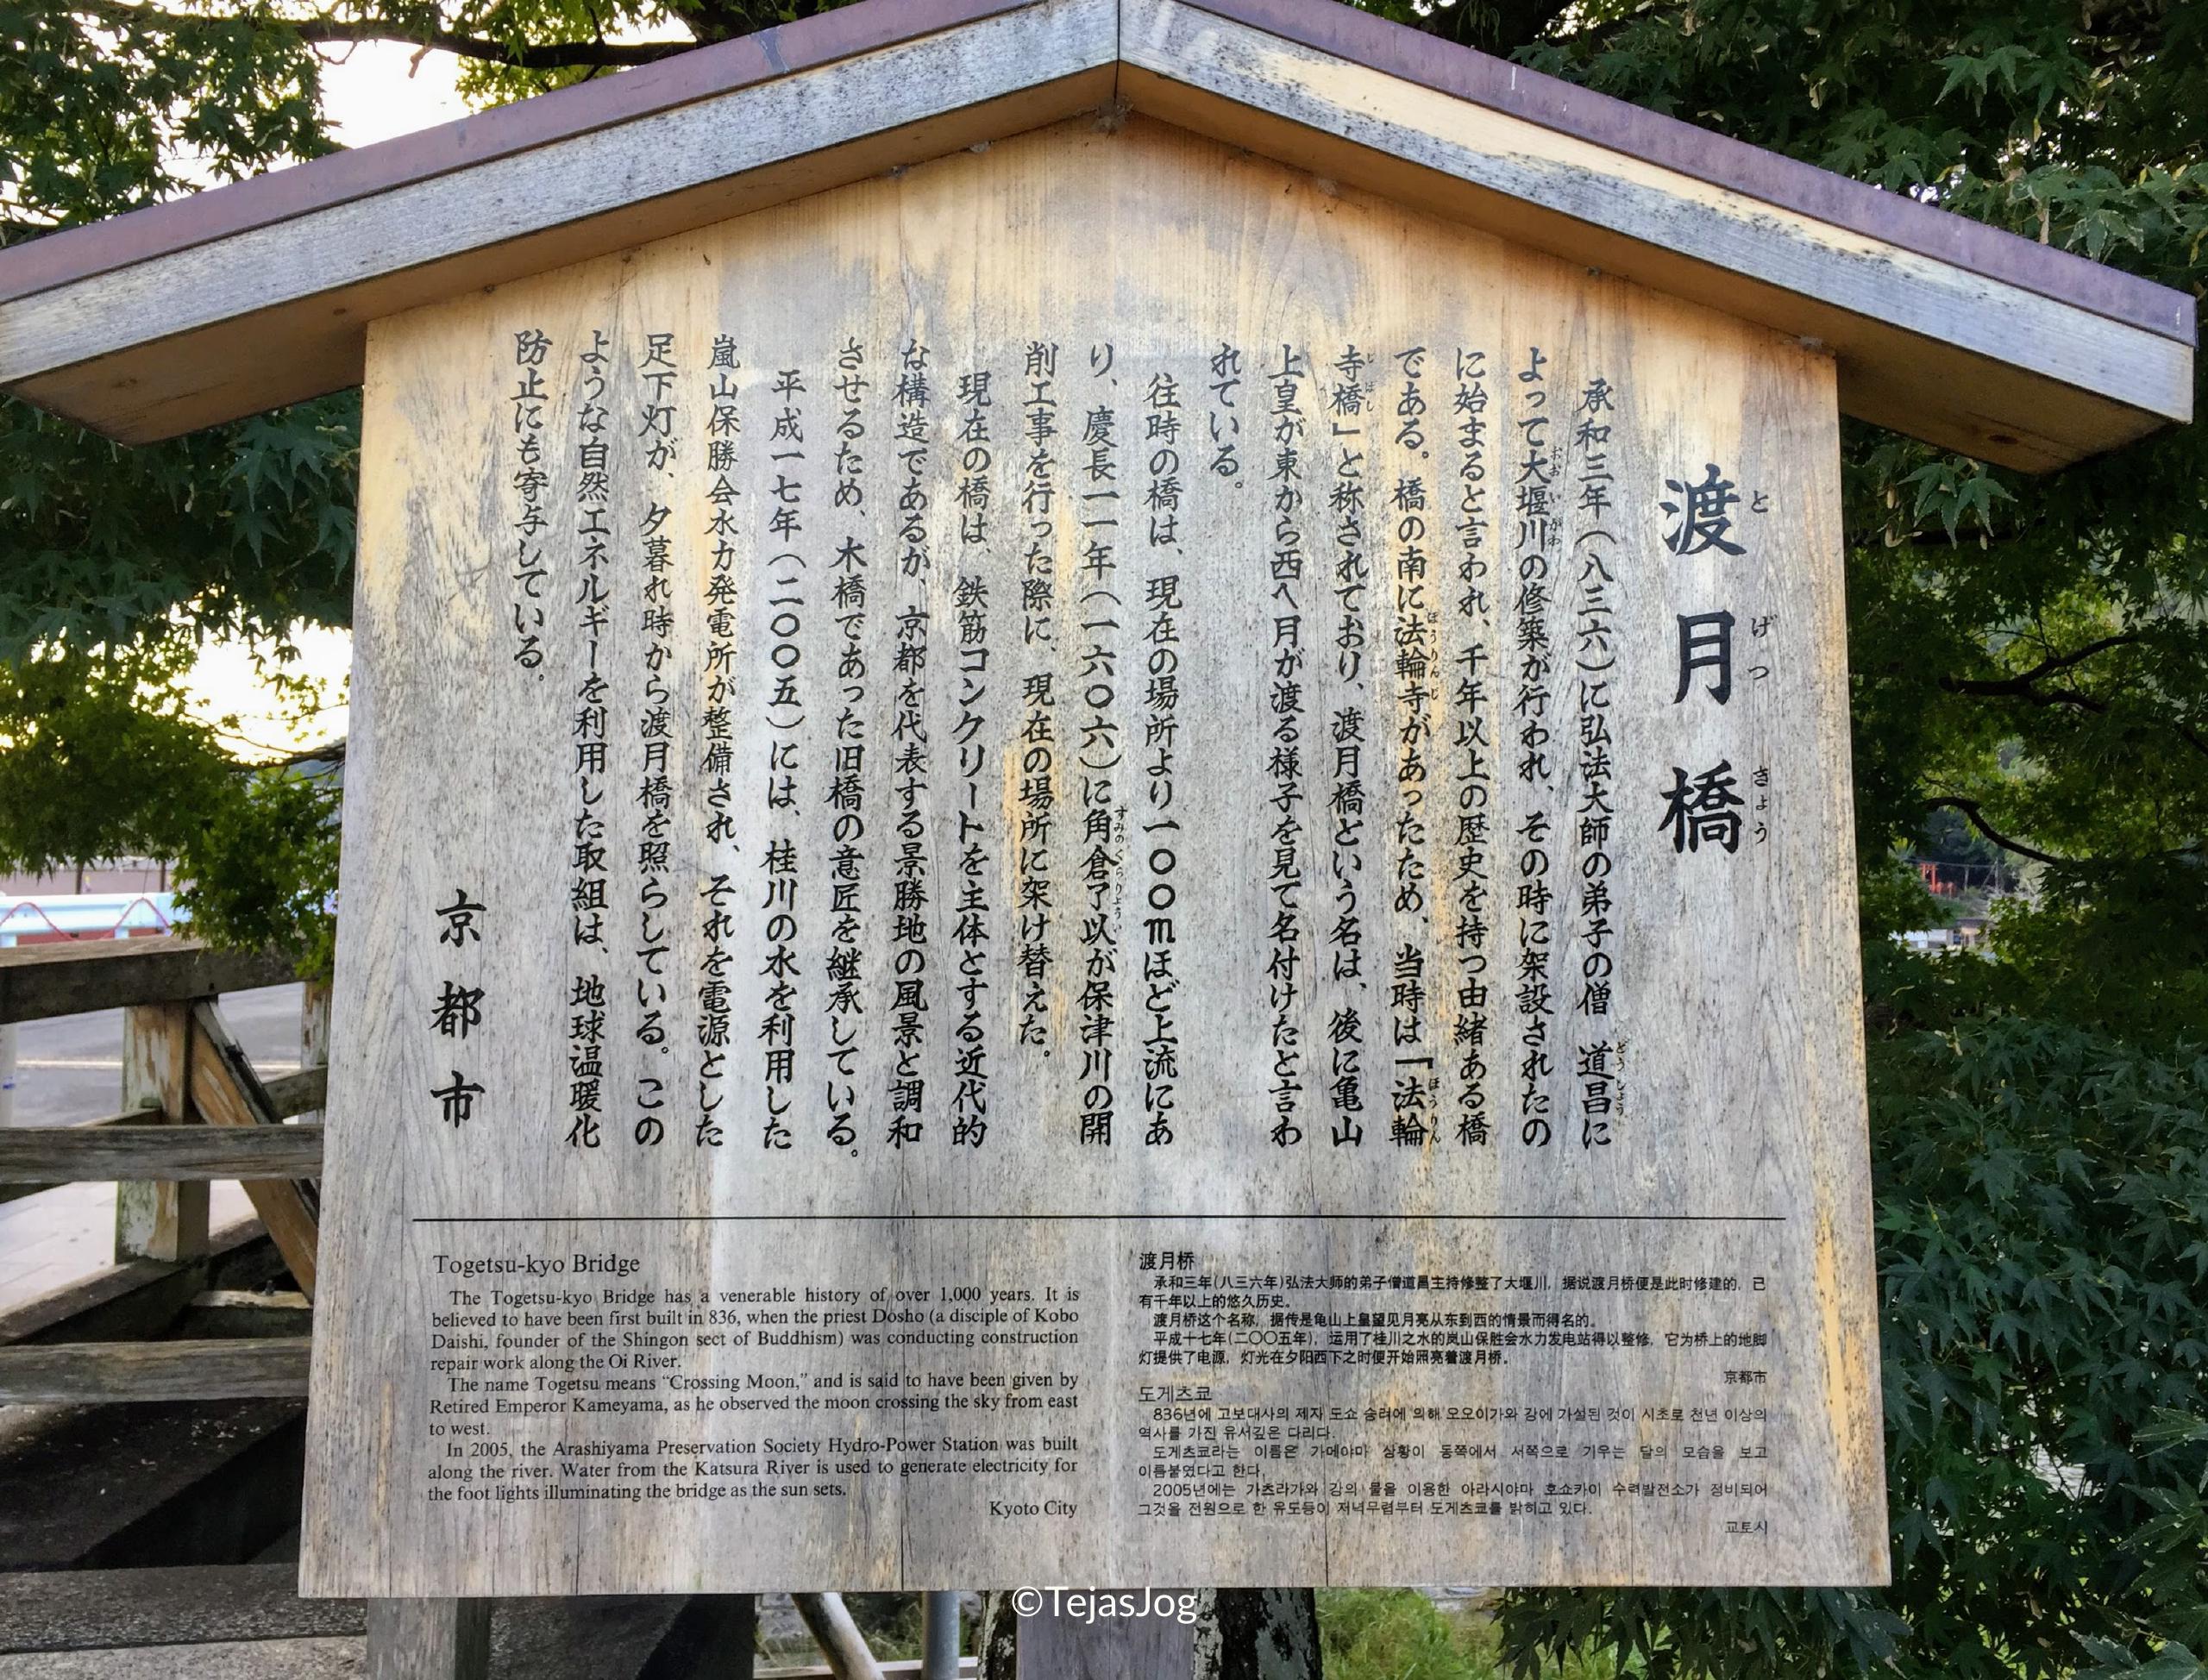 渡月橋
とげつきょう
承和三年（八三六）に弘法大師の弟子の僧 道昌に
よって大堰川の修築が行われ、その時に架設されたの
に始まると言われ、千年以上の歴史を持つ由緒ある橋
である。橋の南に法輪寺があったため、当時は「法輪
寺橋」と称されており、渡月橋という名は、後に亀山
上皇が東から西へ月が渡る様子を見て名付けたと言わ
れている。
往時の橋は、現在の場所より一〇〇mほど上流にあ
り、慶長一一年（一六〇六）に角倉了以が保津川の開
削工事を行った際に、現在の場所に架け替えた。
現在の橋は、鉄筋コンクリートを主体とする近代的
な構造であるが、京都を代表する景勝地の風景と調和
させるため、木橋であった旧橋の意匠を継承している。
平成一七年（二〇〇五）には、桂川の水を利用した
嵐山保勝会水力発電所が整備され、それを電源とした
足下灯が、夕暮れ時から渡月橋を照らしている。この
ような自然エネルギーを利用した取組は、地球温暖化
防止にも寄与している。
京都市
Togetsu-kyo Bridge
The Togetsu-kyo Bridge has a venerable history of over 1,000 years. It is
believed to have been first built in 836, when the priest Dosho (a disciple of Kobo
Daishi, founder of the Shingon sect of Buddhism) was conducting construction
repair work along the Oi River.
The name Togetsu means “Crossing Moon,” and is said to have been given by
Retired Emperor Kameyama, as he observed the moon crossing the sky from east
to west.
In 2005, the Arashiyama Preservation Society Hydro-Power Station was built
along the river. Water from the Katsura River is used to generate electricity for
the foot lights illuminating the bridge as the sun sets.
Kyoto City
渡月桥
承和三年(八三六年)弘法大师的弟子僧道昌主持修整了大堰川，据说渡月桥便是此时修建的，已
有千年以上的悠久历史。
渡月桥这个名称，据传是龟山上皇望见月亮从东到西的情景而得名的。
平成十七年(二〇〇五年)，运用了桂川之水的岚山保胜会水力发电站得以整修，它为桥上的地脚
灯提供了电源，灯光在夕阳西下之时便开始照亮着渡月桥。
京都市
도게츠쿄
836년에 고보대사의 제자 도쇼 승려에 의해 오오이가와 강에 가설된 것이 시초로 천년 이상의
역사를 가진 유서깊은 다리다.
도게츠쿄라는 이름은 가메야마 상황이 동쪽에서 서쪽으로 기우는 달의 모습을 보고
이름붙였다고 한다.
2005년에는 가츠라가와 강의 물을 이용한 아라시야마 호쇼카이 수력발전소가 정비되어
그것을 전원으로 한 유도등이 저녁무렵부터 도게츠쿄를 밝히고 있다.
교토시
©TejasJog